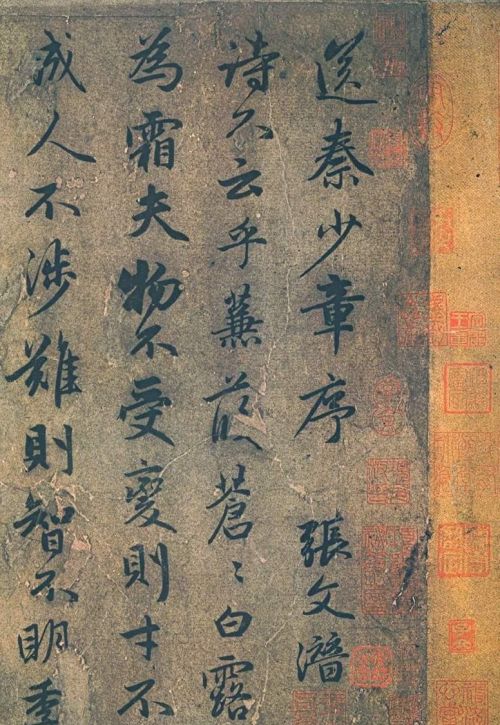 送秦少章序 張文潛
詩不云乎蒹葭蒼〻白露
為霜夫物不受變則才不
成人不涉難則智不明季